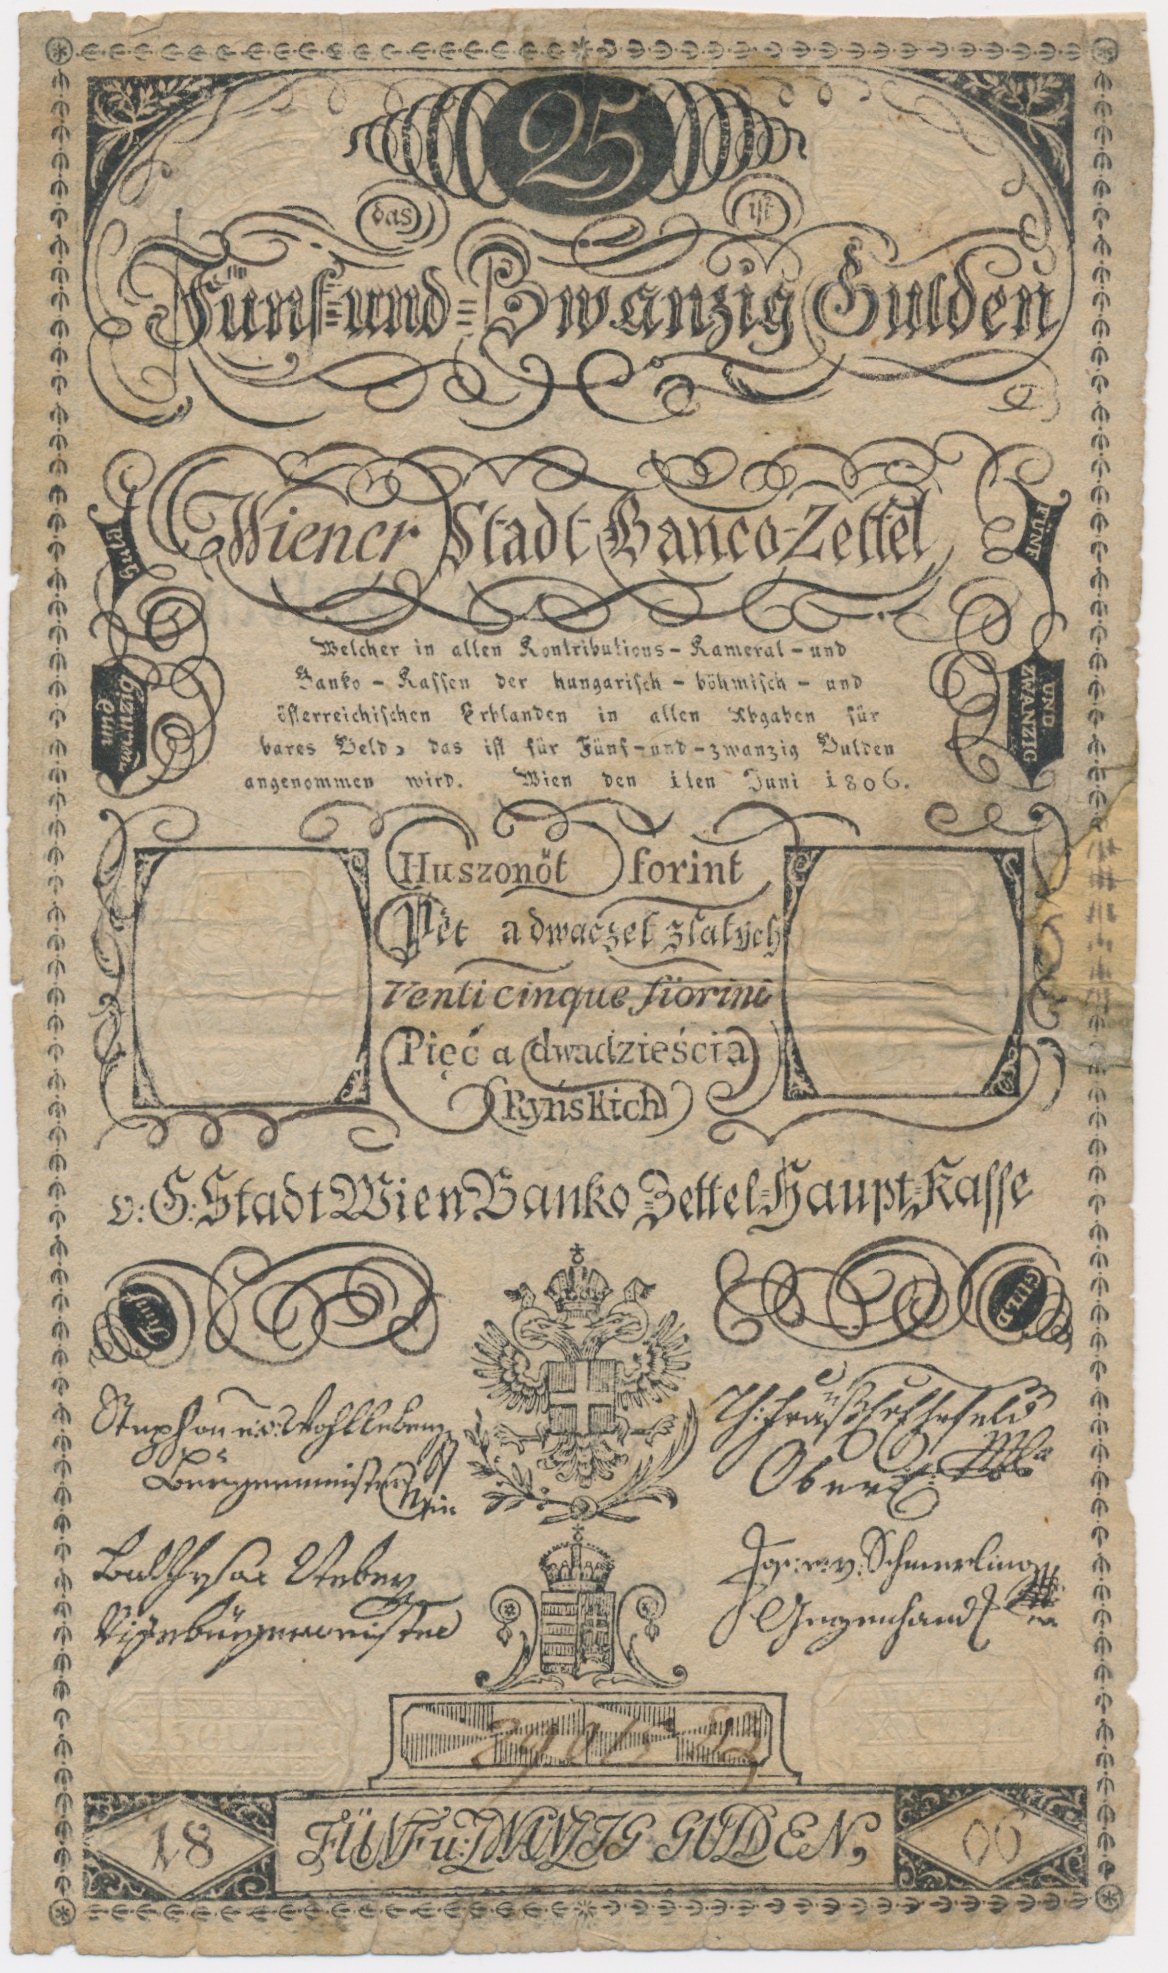 25
das ist
Fünf=und=Zwanzig Gulden
Wiener Stadt Banco-Zettel
FÜNF
Welcher in allen Kontributions-Kameral-und
Banko-Kassen der hungarisch-böhmisch-und
österreichischen Erblanden in allen Abgaben für
bares Geld, das ist für Fünf-und-zwanzig Gulden
angenommen wird. Wien den 1ten Juni 1806.
UND
ZWANZIG
Huszonöt forint
Pět a dwaczet zlatych
Venti cinque fiorini
Pięć a dwadzieścia
Ryńskich
v: G: Stadt Wien Banko Zettel=Haupt=Kasse
GULD
Stephan e: v: Wohlleben
Burgermeister
Obere
Balthasar Weber
Vizebürgermeister
Jos: e: v: Schmerling
Gegenhand
18 FÜNF u: ZWANZIG GULDEN, 06